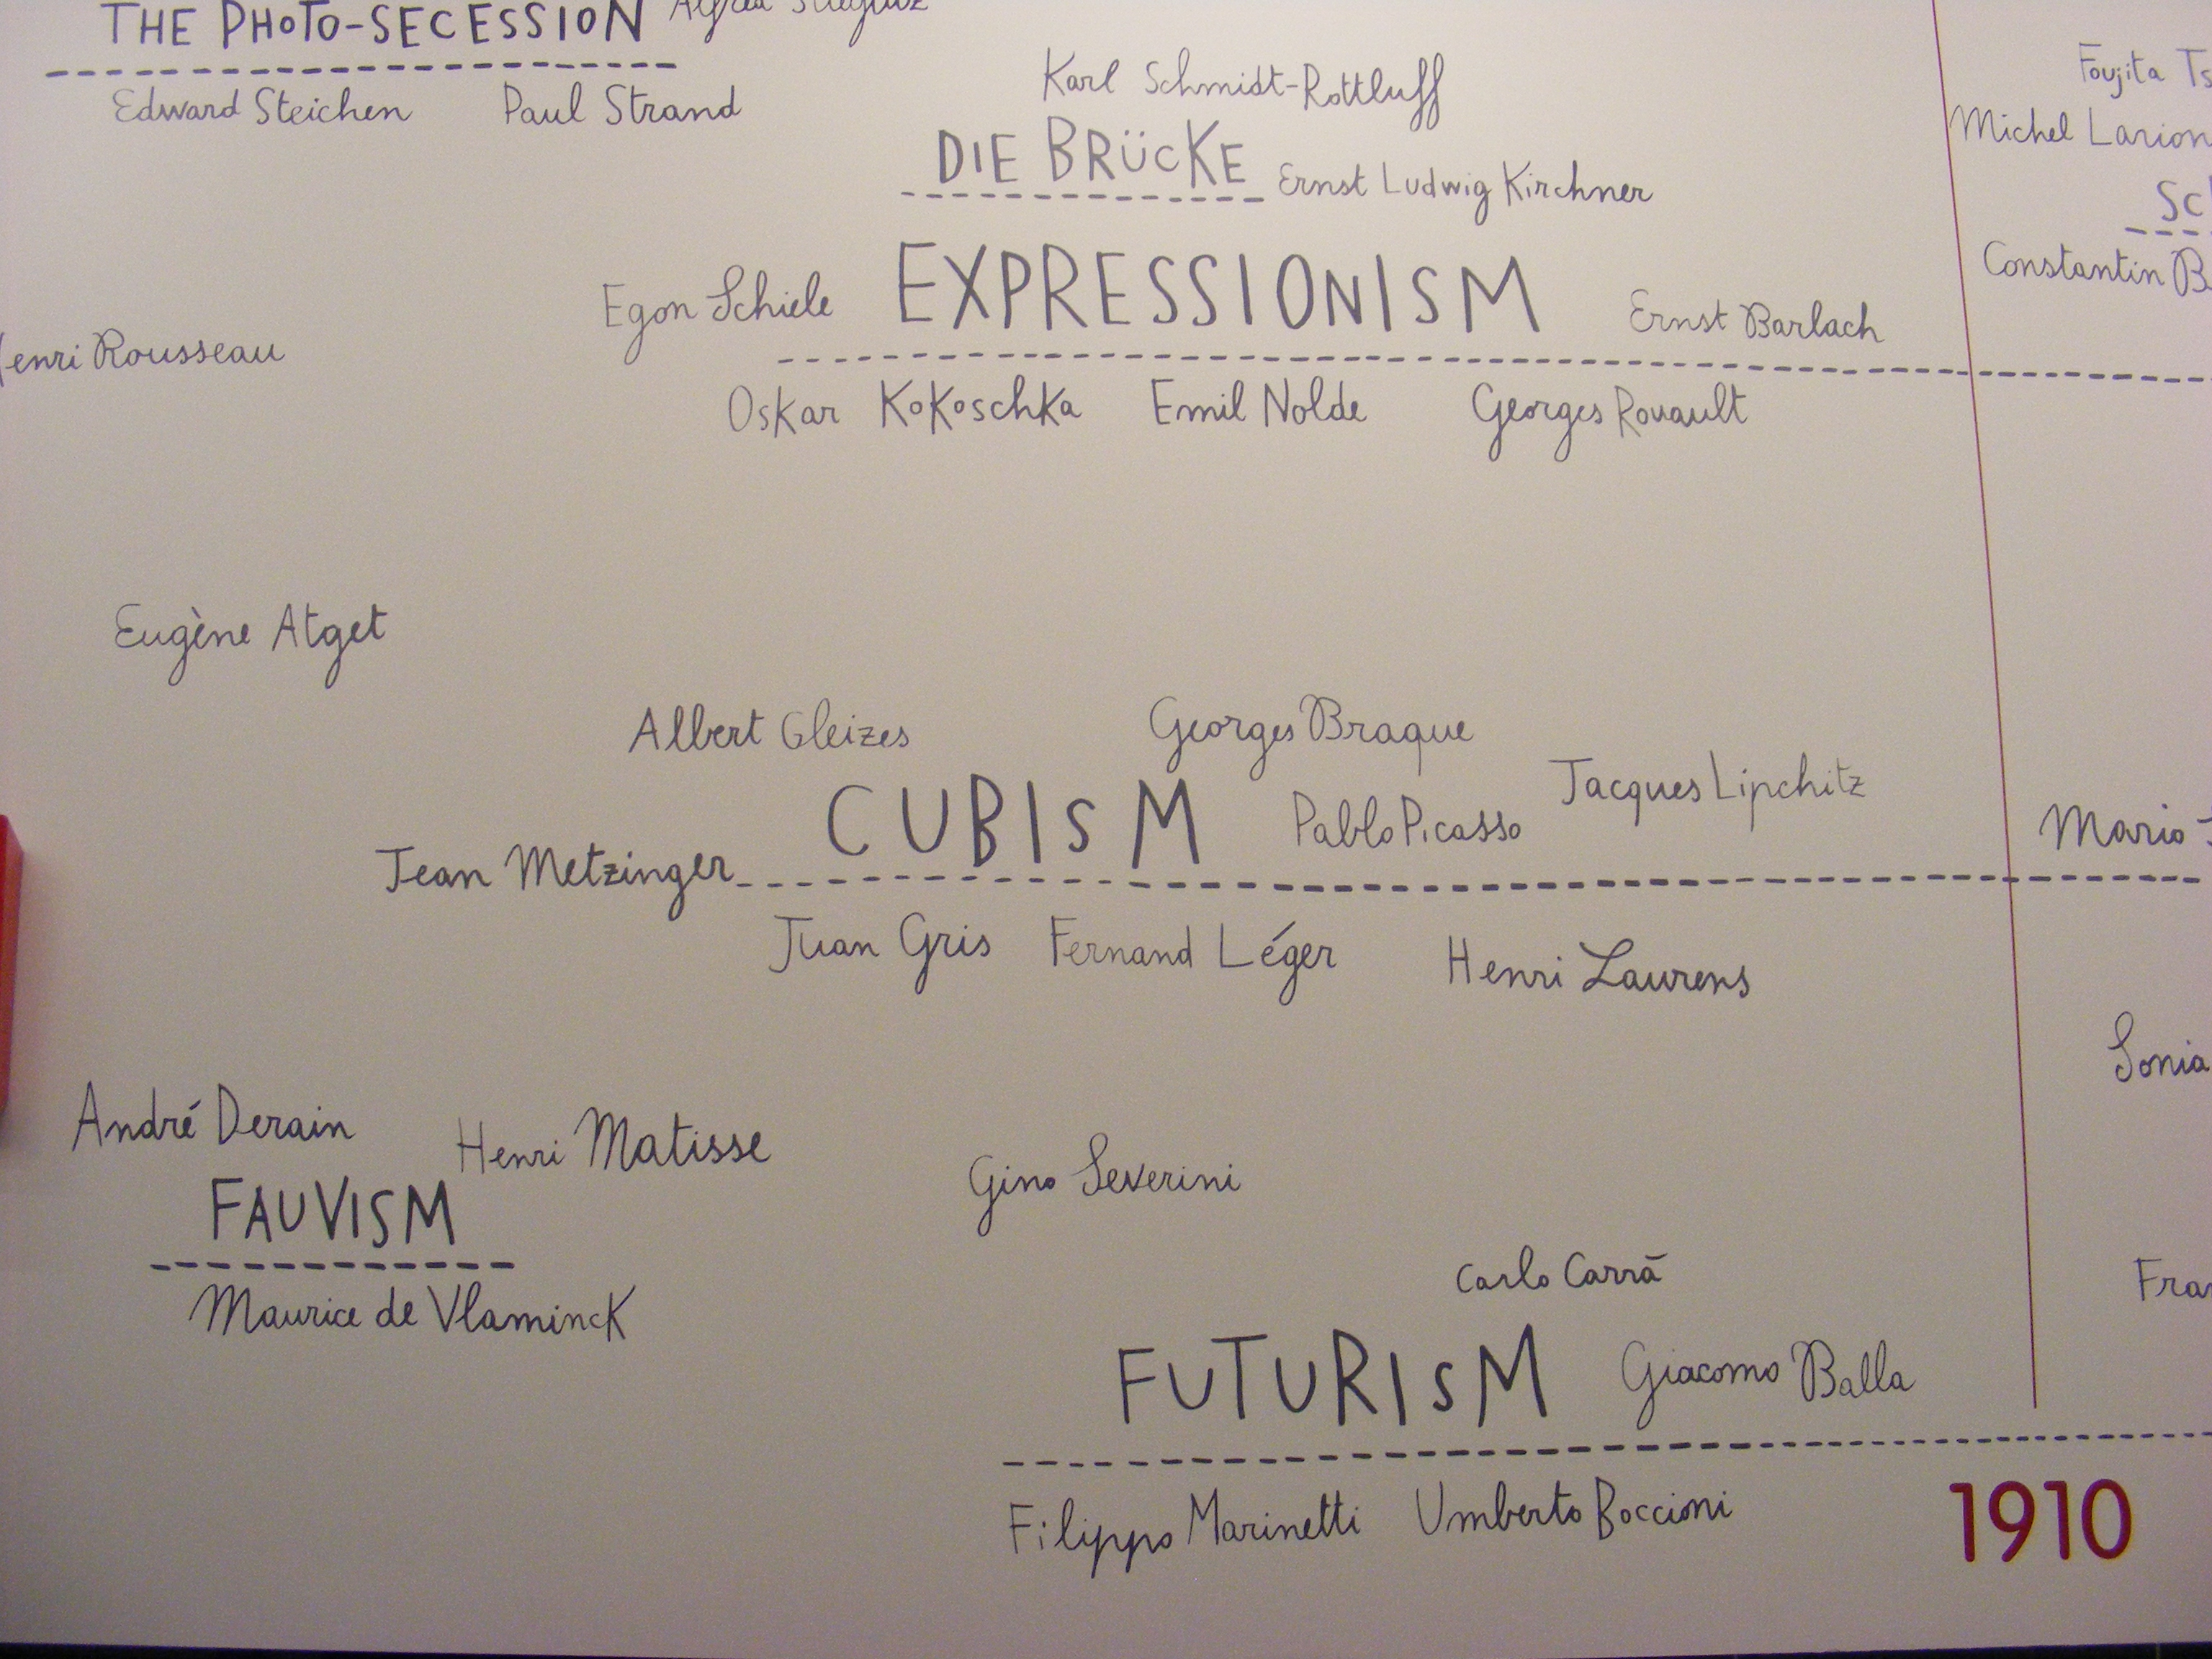 THE PHOTO-SECESSION Alfred Stieglitz
Edward Steichen Paul Strand
Karl Schmidt-Rottluff
DIE BRÜCKE Ernst Ludwig Kirchner
Egon Schiele EXPRESSIONISM Ernst Barlach
Henri Rousseau
Oskar Kokoschka Emil Nolde Georges Rouault
Eugène Atget
Albert Gleizes Georges Braque
CUBISM Pablo Picasso Jacques Lipchitz
Jean Metzinger
Juan Gris Fernand Léger Henri Laurens
André Derain Henri Matisse
FAUVISM
Maurice de Vlaminck
Gino Severini
Carlo Carrà
FUTURISM Giacomo Balla
Filippo Marinetti Umberto Boccioni
1910
Foujita
Michel
Constantin
Mario
Sonia